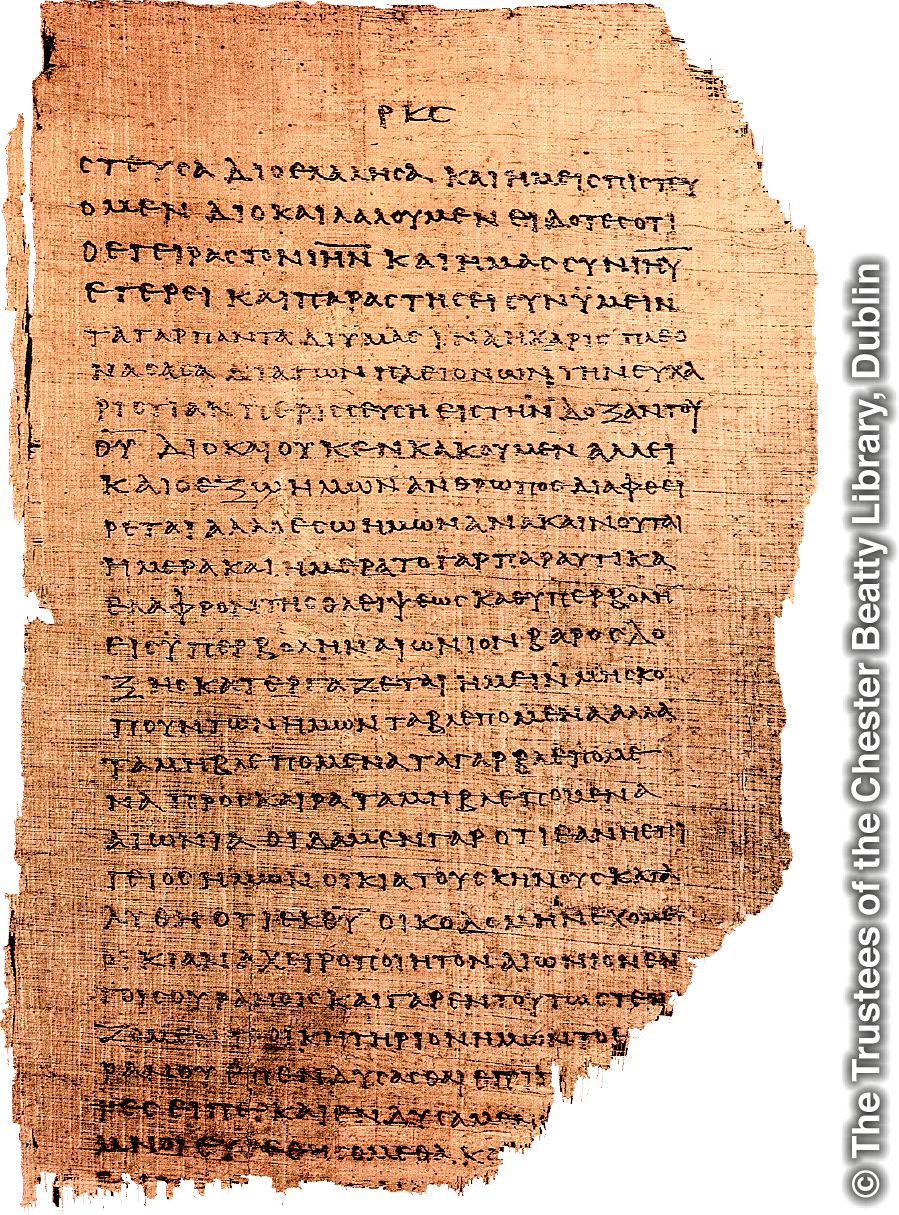 ΡΚϚ
ϹΤΕΥϹΑ ΔΙΟ ΕΛΑΛΗϹΑ ΚΑΙ ΗΜΕΙϹ ΠΙϹΤΕΥ
ΟΜΕΝ ΔΙΟ ΚΑΙ ΛΑΛΟΥΜΕΝ ΕΙΔΟΤΕϹ ΟΤΙ
Ο ΕΓΕΙΡΑϹ ΤΟΝ Ι̅Η̅Ν̅ ΚΑΙ ΗΜΑϹ ϹΥΝ Ι̅Η̅Υ̅
ΕΓΕΡΕΙ ΚΑΙ ΠΑΡΑϹΤΗϹΕΙ ϹΥΝ ΫΜΕΙΝ
ΤΑ ΓΑΡ ΠΑΝΤΑ ΔΙ ΥΜΑϹ ΙΝΑ Η ΧΑΡΙϹ ΠΛΕΟ
ΝΑϹΑϹΑ ΔΙΑ ΤΩΝ ΠΛΕΙΟΝΩΝ ΤΗΝ ΕΥΧΑ
ΡΙϹΤΙΑΝ ΠΕΡΙϹϹΕΥϹΗ ΕΙϹ ΤΗΝ ΔΟΞΑΝ ΤΟΥ
Θ̅Υ̅ ΔΙΟ ΚΑΙ ΟΥΚ ΕΝΚΑΚΟΥΜΕΝ ΑΛΛ ΕΙ
ΚΑΙ Ο ΕΞΩ ΗΜΩΝ ΑΝΘΡΩΠΟϹ ΔΙΑΦΘΕΙ
ΡΕΤΑΙ ΑΛΛ Ο ΕϹΩ ΗΜΩΝ ΑΝΑΚΑΙΝΟΥΤΑΙ
ΗΜΕΡΑ ΚΑΙ ΗΜΕΡΑ ΤΟ ΓΑΡ ΠΑΡΑΥΤΙΚΑ
ΕΛΑΦΡΟΝ ΤΗϹ ΘΛΕΙΨΕΩϹ ΚΑΘ ΥΠΕΡΒΟΛΗ̅
ΕΙϹ ΫΠΕΡΒΟΛΗΝ ΑΙΩΝΙΟΝ ΒΑΡΟϹ ΔΟ
ΞΗϹ ΚΑΤΕΡΓΑΖΕΤΑΙ ΗΜΕΙΝ ΜΗ ϹΚΟ
ΠΟΥΝΤΩΝ ΗΜΩΝ ΤΑ ΒΛΕΠΟΜΕΝΑ ΑΛΛΑ
ΤΑ ΜΗ ΒΛΕΠΟΜΕΝΑ ΤΑ ΓΑΡ ΒΛΕΠΟΜΕ
ΝΑ ΠΡΟϹΚΑΙΡΑ ΤΑ ΜΗ ΒΛΕΠΟΜΕΝΑ
ΑΙΩΝΙΑ ΟΙΔΑΜΕΝ ΓΑΡ ΟΤΙ ΕΑΝ Η ΕΠΙ
ΓΕΙΟϹ ΗΜΩΝ ΟΙΚΙΑ ΤΟΥ ϹΚΗΝΟΥϹ ΚΑΤΑ
ΛΥΘΗ ΟΤΙ ΕΚ Θ̅Υ̅ ΟΙΚΟΔΟΜΗΝ ΕΧΟΜΕ̅
ΟΙΚΙΑΝ ΑΧΕΙΡΟΠΟΙΗΤΟΝ ΑΙΩΝΙΟΝ ΕΝ
ΤΟΙϹ ΟΥΡΑΝΟΙϹ ΚΑΙ ΓΑΡ ΕΝ ΤΟΥΤΩ ϹΤΕΝ
ΖΟΜΕΝ ΤΟ ΟΙΚΗΤΗΡΙΟΝ ΗΜΩΝ ΤΟ
ΡΑΝΟΥ ΕΠΕΝΔΥϹΑϹΘΑΙ ΕΠΙΠ
ΤΕϹ ΕΙΠΕΡ ΚΑΙ ΕΝΔΥϹΑΜΕΝ
ΜΝΟΙ ΕΥΡΕΘΗϹΟΜΕΘΑ Κ
© The Trustees of the Chester Beatty Library, Dublin